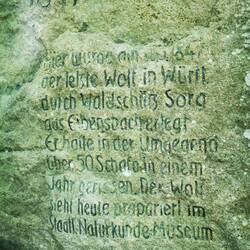 1847
Hier wurde am 1847
der letzte Wolf in Württ.
durch Waldschütz Sorg
aus Eibensbach erlegt
Er hatte in der Umgegend
über 50 Schafe in einem
Jahr gerissen. Der Wolf
steht heute präpariert im
Staatl. Naturkunde-Museum